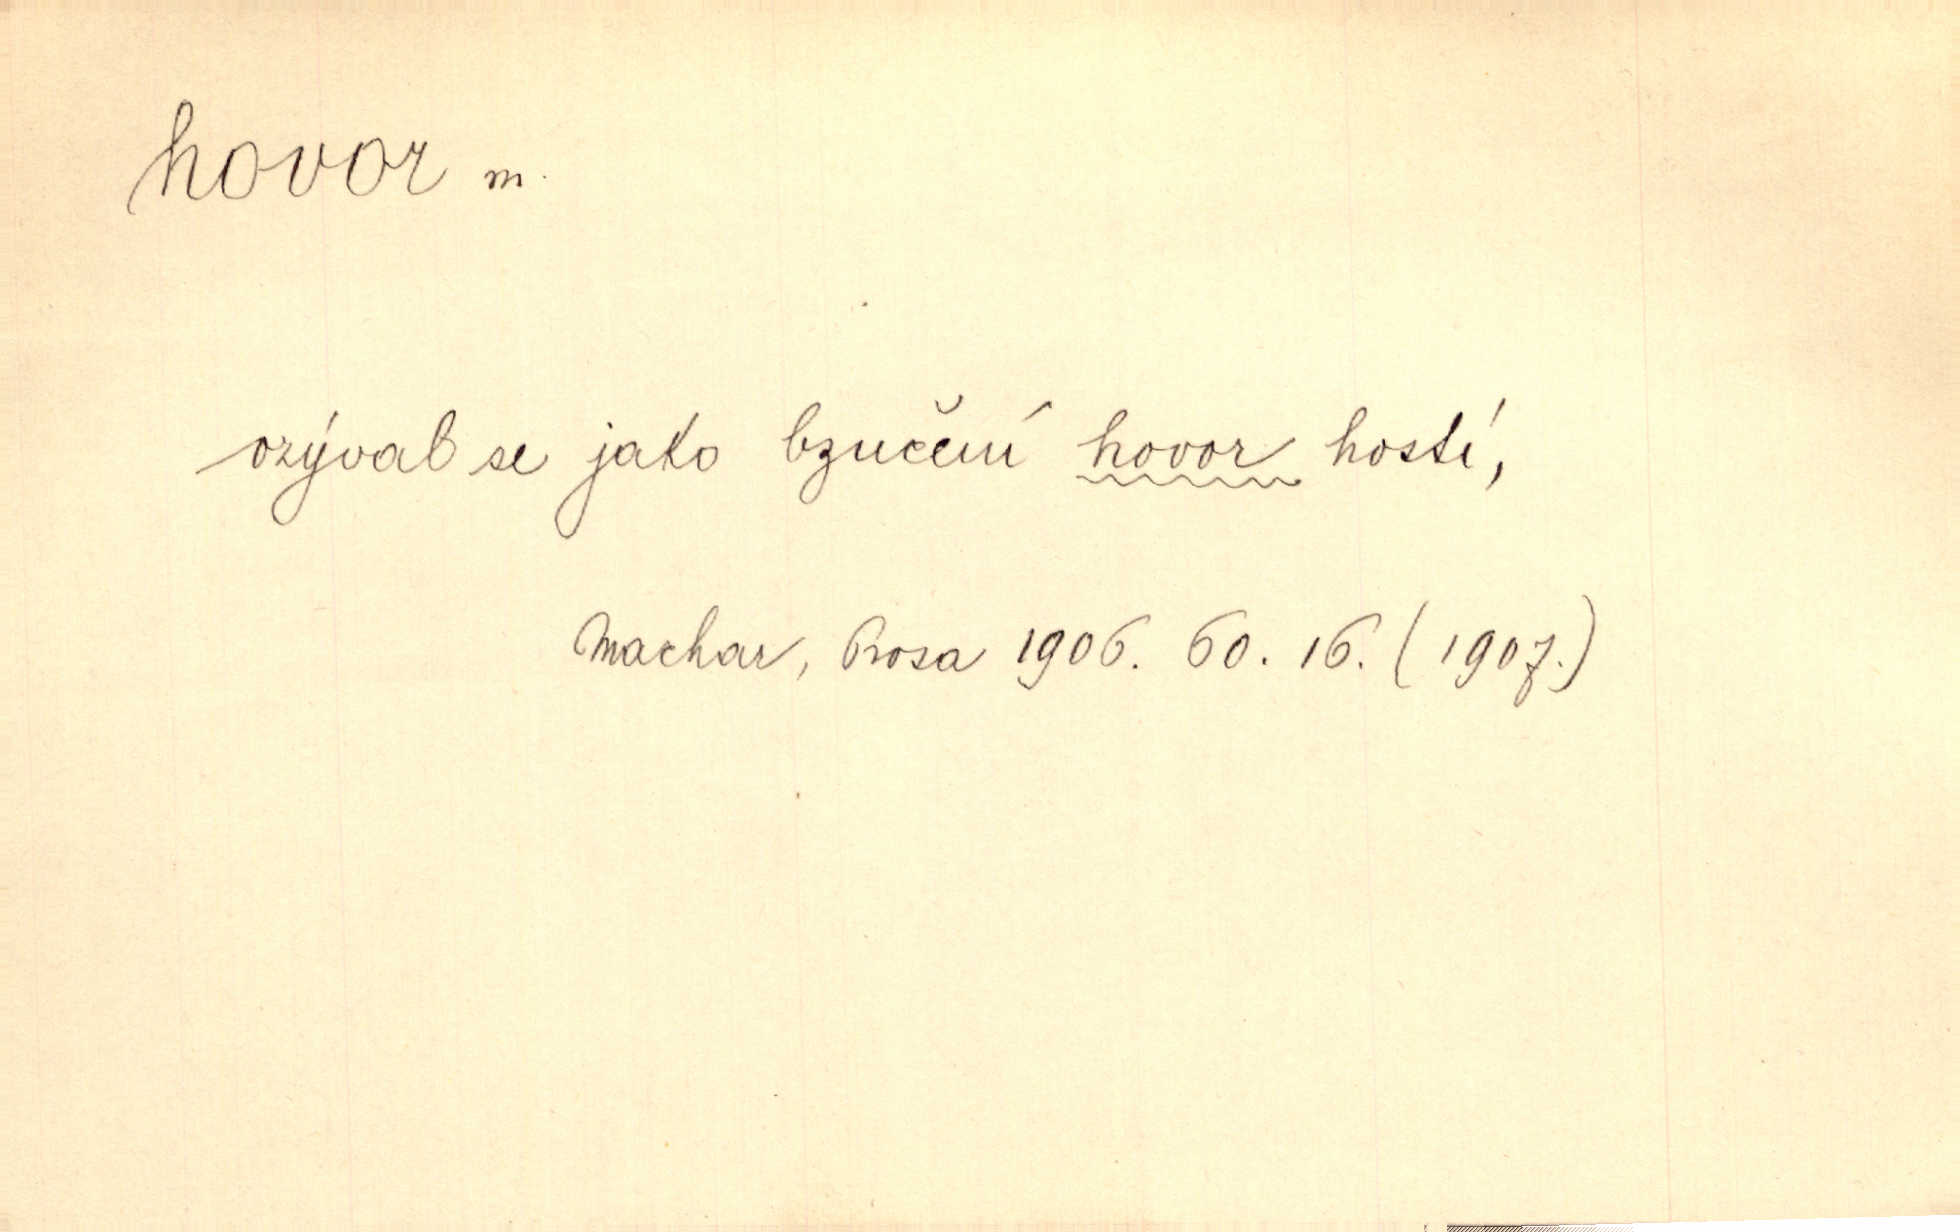 hovor m.
ozýval se jako bzučení hovor hostí,
Machar, Prosa 1906. 60. 16. (1907.)